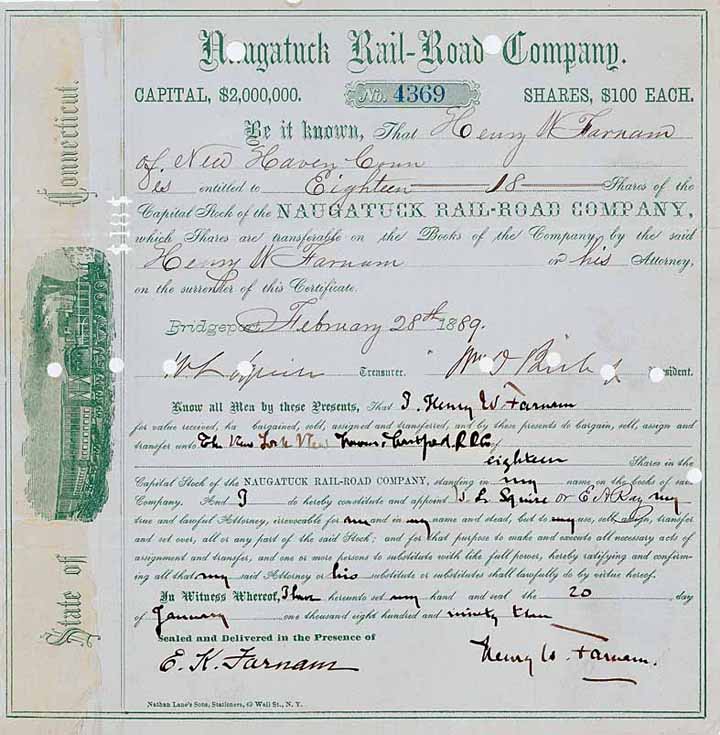 Naugatuck Rail-Road Company.
CAPITAL, $2,000,000. No. 4369 SHARES, $100 EACH.
Be it known, That Henry W Farnam
of New Haven Conn
is entitled to Eighteen 18 Shares of the
Capital Stock of the NAUGATUCK RAIL-ROAD COMPANY,
which Shares are transferable on the Books of the Company, by the said
Henry W Farnam or his Attorney,
on the surrender of this Certificate.
Bridgeport February 28th 1889.
Treasurer. President.
Know all Men by these Presents, That I, Henry W. Farnam
for value received, ha bargained, sold, assigned and transferred, and by these presents do bargain, sell, assign and
transfer unto The New York New Haven & Hartford R.R. Co. of
eighteen Shares in the
Capital Stock of the NAUGATUCK RAIL-ROAD COMPANY, standing in my name on the books of said
Company. And I do hereby constitute and appoint L. Squire or E A Ray my
true and lawful Attorney, irrevocable for me and in my name and stead, but to my use, sell, assign, transfer
and set over, all or any part of the said Stock; and for that purpose to make and execute all necessary acts of
assignment and transfer, and one or more persons to substitute with like full power, hereby ratifying and confirm-
ing all that my said Attorney or his substitute or substitutes shall lawfully do by virtue hereof.
In Witness Whereof, I have hereunto set my hand and seal the 20 day
of January one thousand eight hundred and ninety
Sealed and Delivered in the Presence of
E. K. Farnam Henry W. Farnam.
Nathan Lane's Sons, Stationers, 69 Wall St., N. Y.
State of Connecticut.
$18$